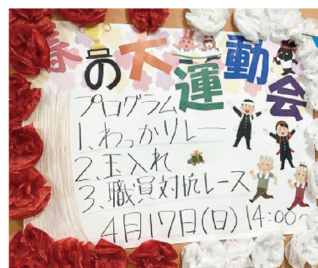 春の大運動会
プログラム
1、わっかリレー
2、玉入れ
3、職員対抗レース
4月17日(日)14:00~